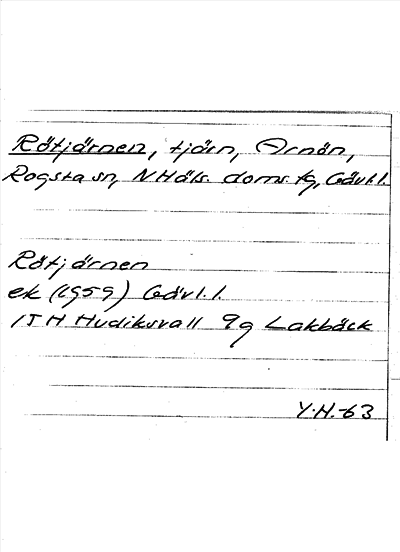 Rötjärnen, tjärn, Arnön,
Rogsta sn, N Häls. doms. tg, Gävl.l.
Rötjärnen
ek (1959) Gävl.l.
15H Hudiksvall 9g Lakbäck
Y.H.-63